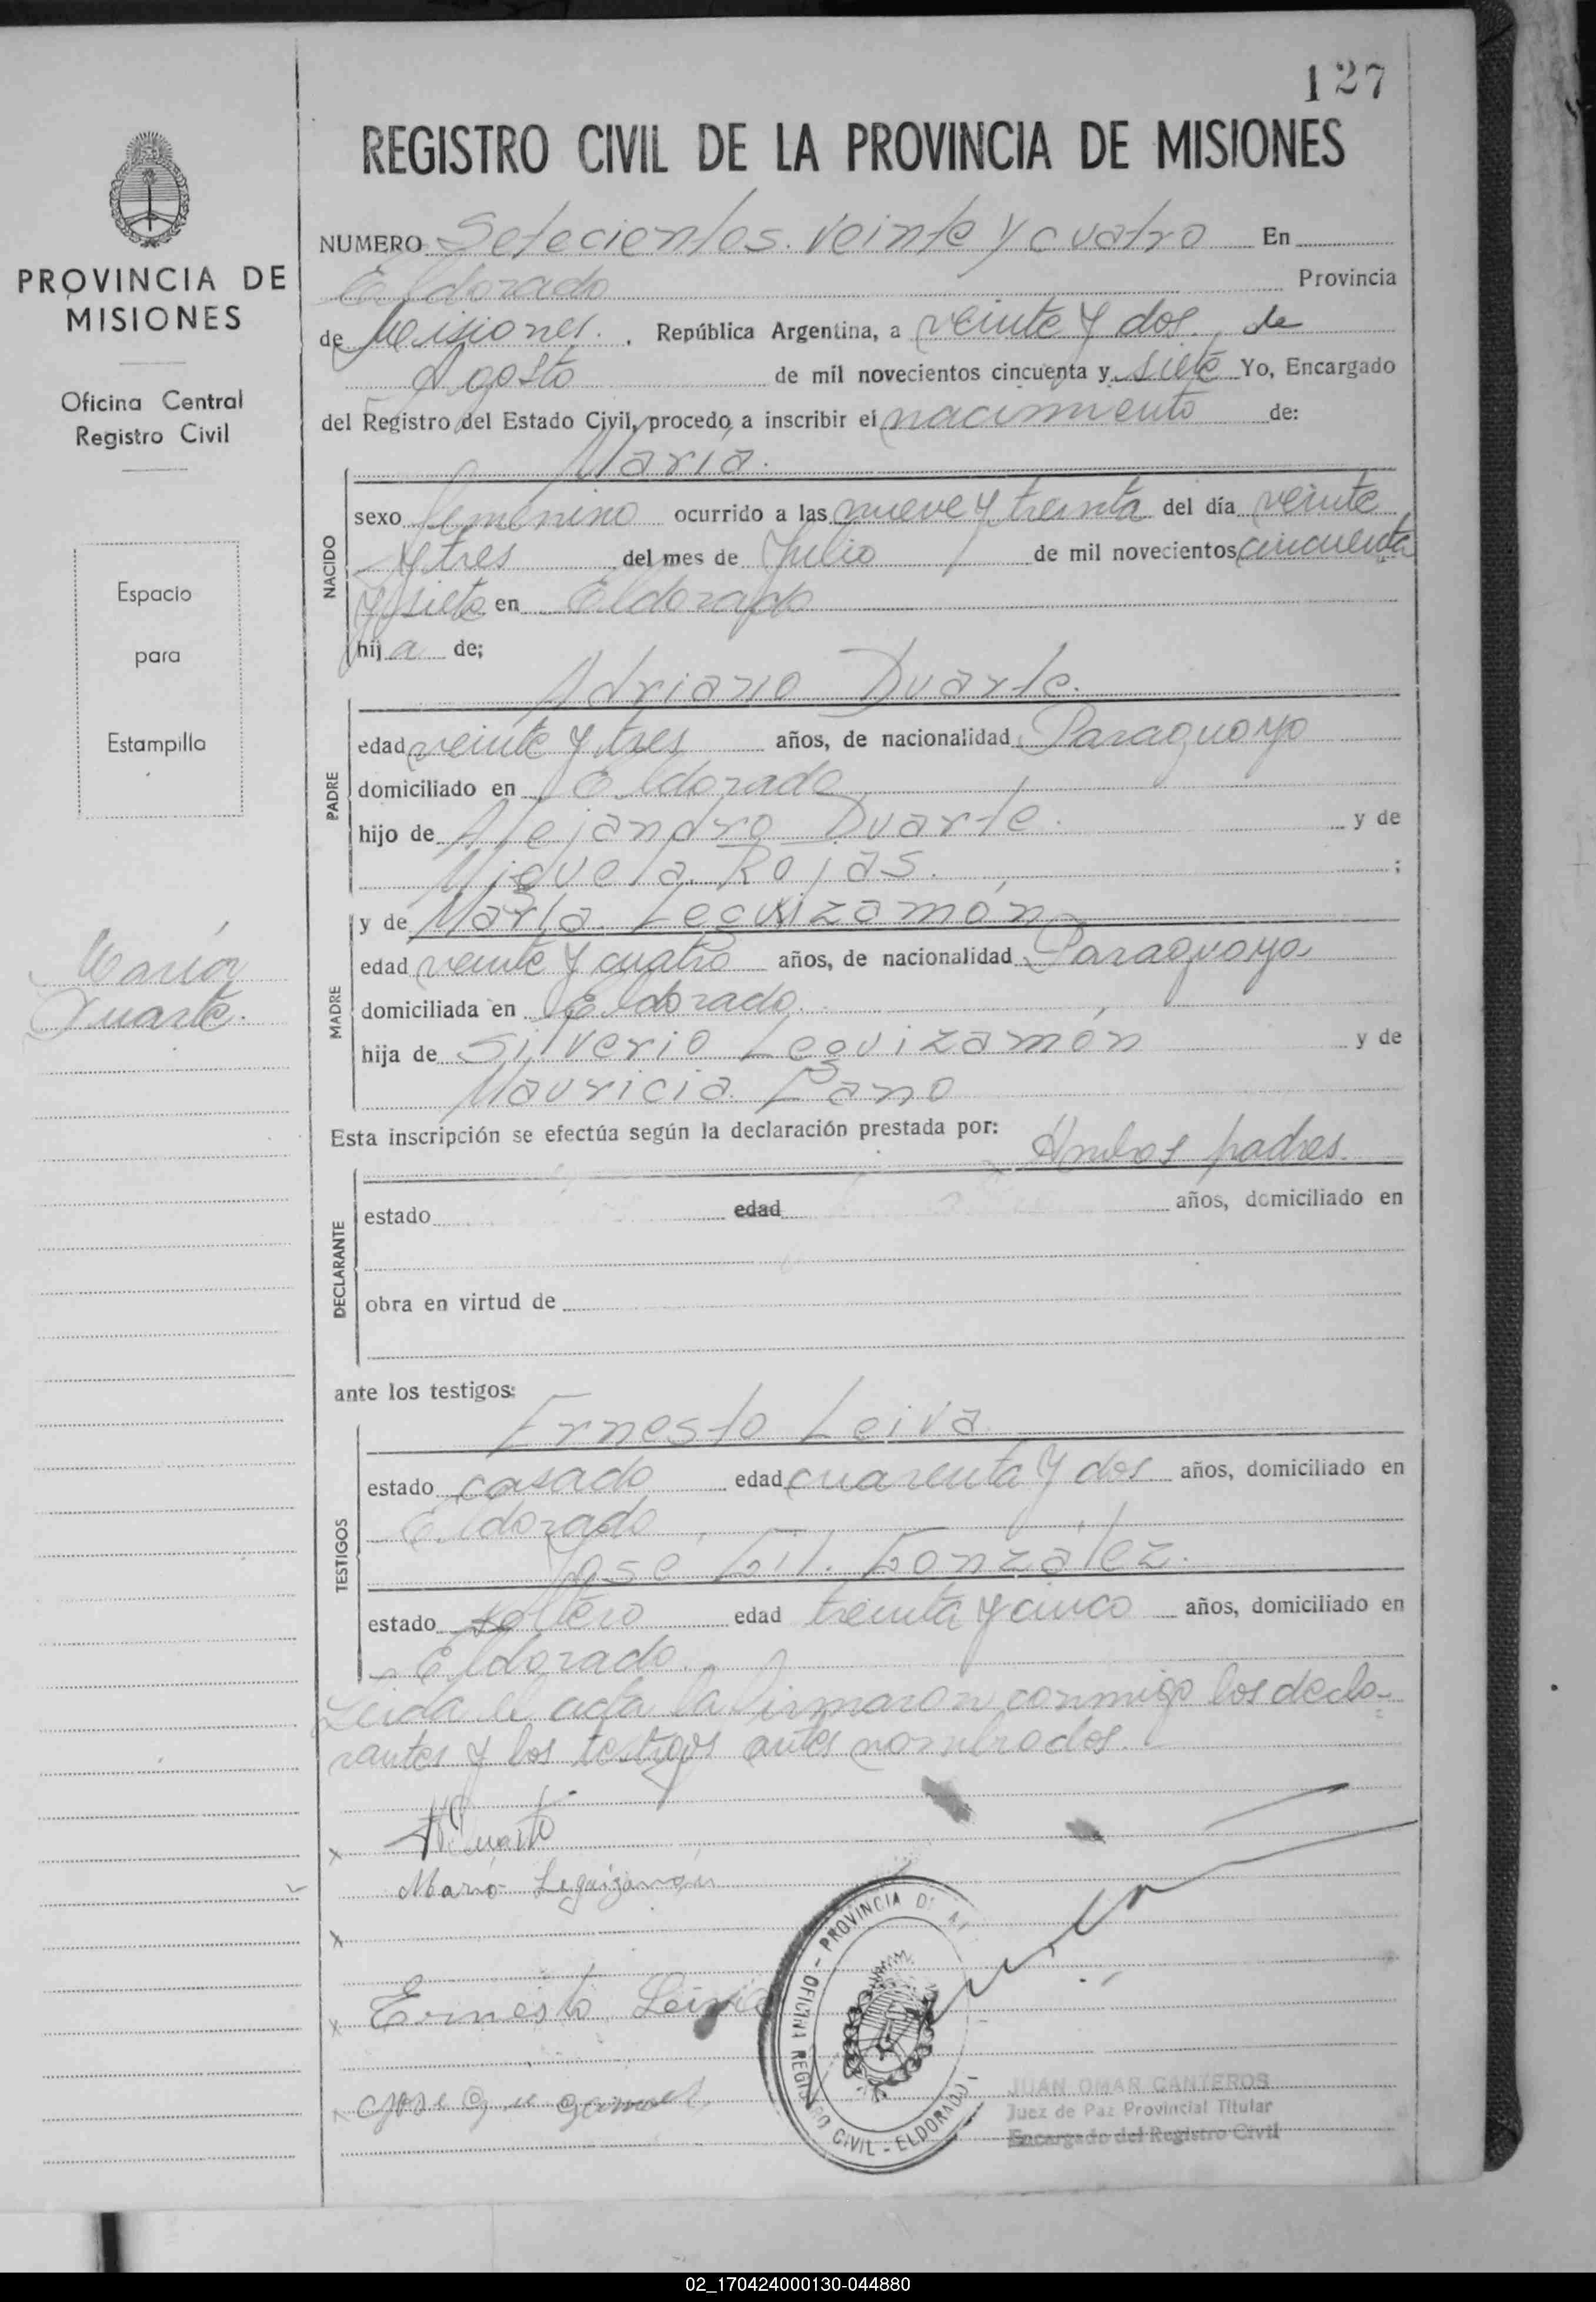 127
REGISTRO CIVIL DE LA PROVINCIA DE MISIONES
PROVINCIA DE
MISIONES
Oficina Central
Registro Civil
Espacio
para
Estampilla
María
Duarte.
NUMERO Setecientos veinte y cuatro En
Eldorado Provincia
de Misiones. República Argentina, a veinte y dos de
Agosto de mil novecientos cincuenta y siete Yo, Encargado
del Registro del Estado Civil, procedo a inscribir el nacimiento de:
María.
NACIDO
sexo femenino ocurrido a las nueve y treinta del día veinte
y tres del mes de Julio de mil novecientos cincuenta
y siete en Eldorado
hija de;
Adriano Duarte.
PADRE
edad veinte y tres años, de nacionalidad Paraguayo
domiciliado en Eldorado
hijo de Alejandro Duarte. y de
Miguela Rojas. ;
y de María Leguizamón
MADRE
edad veinte y cuatro años, de nacionalidad Paraguaya
domiciliada en Eldorado.
hija de Silverio Leguizamón y de
Mauricia Cano
Esta inscripción se efectúa según la declaración prestada por:
Ambos padres.
DECLARANTE
estado edad años, domiciliado en
obra en virtud de
ante los testigos:
Ernesto Leiva
TESTIGOS
estado casado edad cuarenta y dos años, domiciliado en
Eldorado
José Gil. González.
estado soltero edad treinta y cinco años, domiciliado en
Eldorado.
Leida el acta la firmaron conmigo los decla-
rantes y los testigos antes nombrados.
x ADuarte
María Leguizamón
x
x Ernesto Leiva
x
PROVINCIA DE
OFICINA REGISTRO CIVIL - ELDORADO
JUAN OMAR CANTEROS
Juez de Paz Provincial Titular
Encargado del Registro Civil
02_170424000130-044880